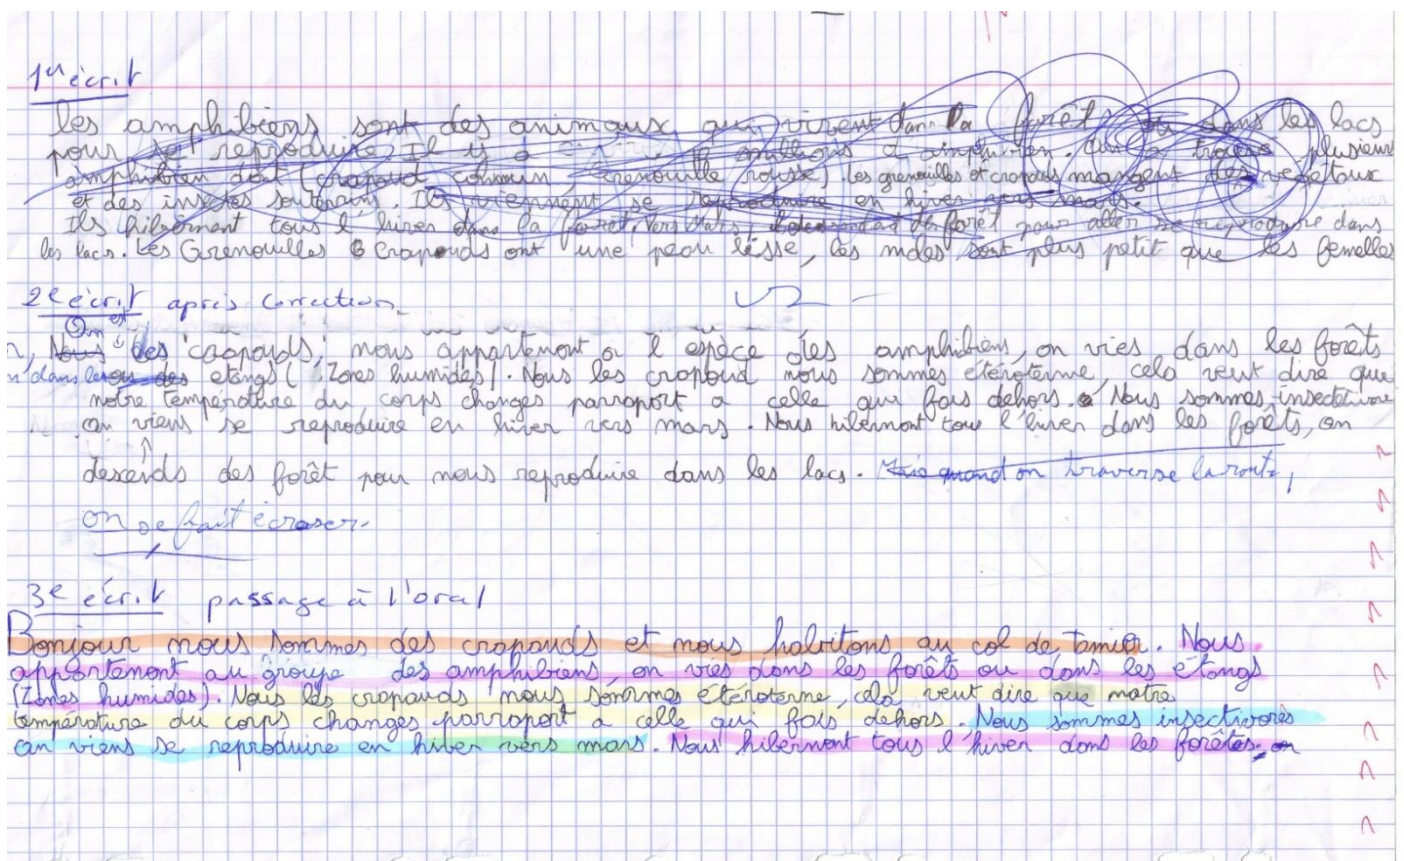 1er écrit
les amphibiens sont des animaux qui vivent dans la forêt ou dans les lacs
pour se reproduire Il y a millions d'amphibien. On a trouve plusieur
amphibien dont (crapaud commun, grenouille rousse) les grenouilles et crapauds mangent des vegetaux
et des insectes souterains. Ils viennent se reproduire en hiver vers mars.
Ils hibernent tous l'hiver dans la forêt, vers Mars forêt pour aller se reproduire dans
les lacs. Les Grenouilles Crapauds ont une peau lisse, les mâles sont plus petit que les femelles
2e écrit après correction
On est
Nous des crapauds, nous appartenont a l'espèce des amphibiens, on vies dans les forêts
dans les étangs (Zones humides). Nous les crapaud nous sommes étéroterme, cela veut dire que
notre température du corps changes parraport a celle qui fais dehors. Nous sommes insectivore
on viens se reproduire en hiver vers mars. Nous hibernont tous l'hiver dans les forêts, on
descends des forêt pour nous reproduire dans les lacs. Mais quand on traverse la route,
on se fait écraser.
3e écrit passage à l'oral
Bonjour nous sommes des crapauds et nous habitons au col de tamier. Nous
appartenont au groupe des amphibiens, on vies dans les forêts ou dans les étangs
(Zones humides). Nous les crapauds nous sommes étéroterme, cela veut dire que notre
température du corps changes parraport a celle qui fais dehors. Nous sommes insectivores
on viens se reproduire en hiver vers mars. Nous hibernont tous l'hiver dans les forêtes, on